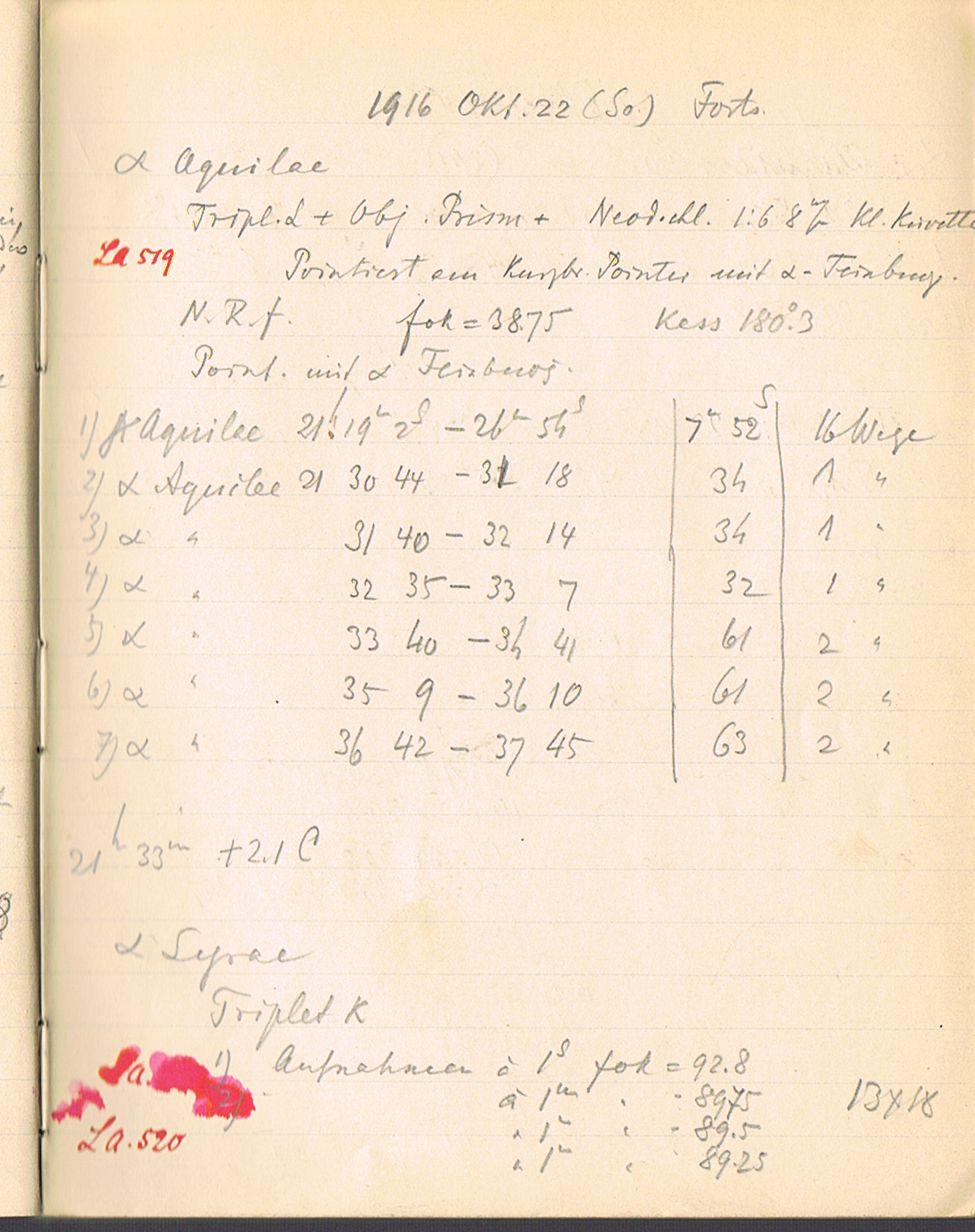 1916 Okt. 22 (So) Forts.
α Aquilae
Tripl. L + Obj. Prism + Neod. chl. 1:6 8 Kl. Küvette
La 519
Pointiert am Kurzbr. Pointer mit α-Feinbweg.
N. R. f. fok = 38.75 Kess 180°.3
Point. mit α Feinbweg.
1) γ Aquilae 21h 19m 2s – 26m 54s 7m 52s 16 Wege
2) α Aquilae 21 30 44 – 31 18 34 1 "
3) α " 31 40 – 32 14 34 1 "
4) α " 32 35 – 33 7 32 1 "
5) α " 33 40 – 34 41 61 2 "
6) α " 35 9 – 36 10 61 2 "
7) α " 36 42 – 37 45 63 2 "
21h 33m +2.1 C
α Lyrae
Triplet K
La.
1) Aufnahmen à 1s fok = 92.8
2) à 1m " " 89.75 13x18
" 1m " " 89.5
La. 520
" 1m " 89.25